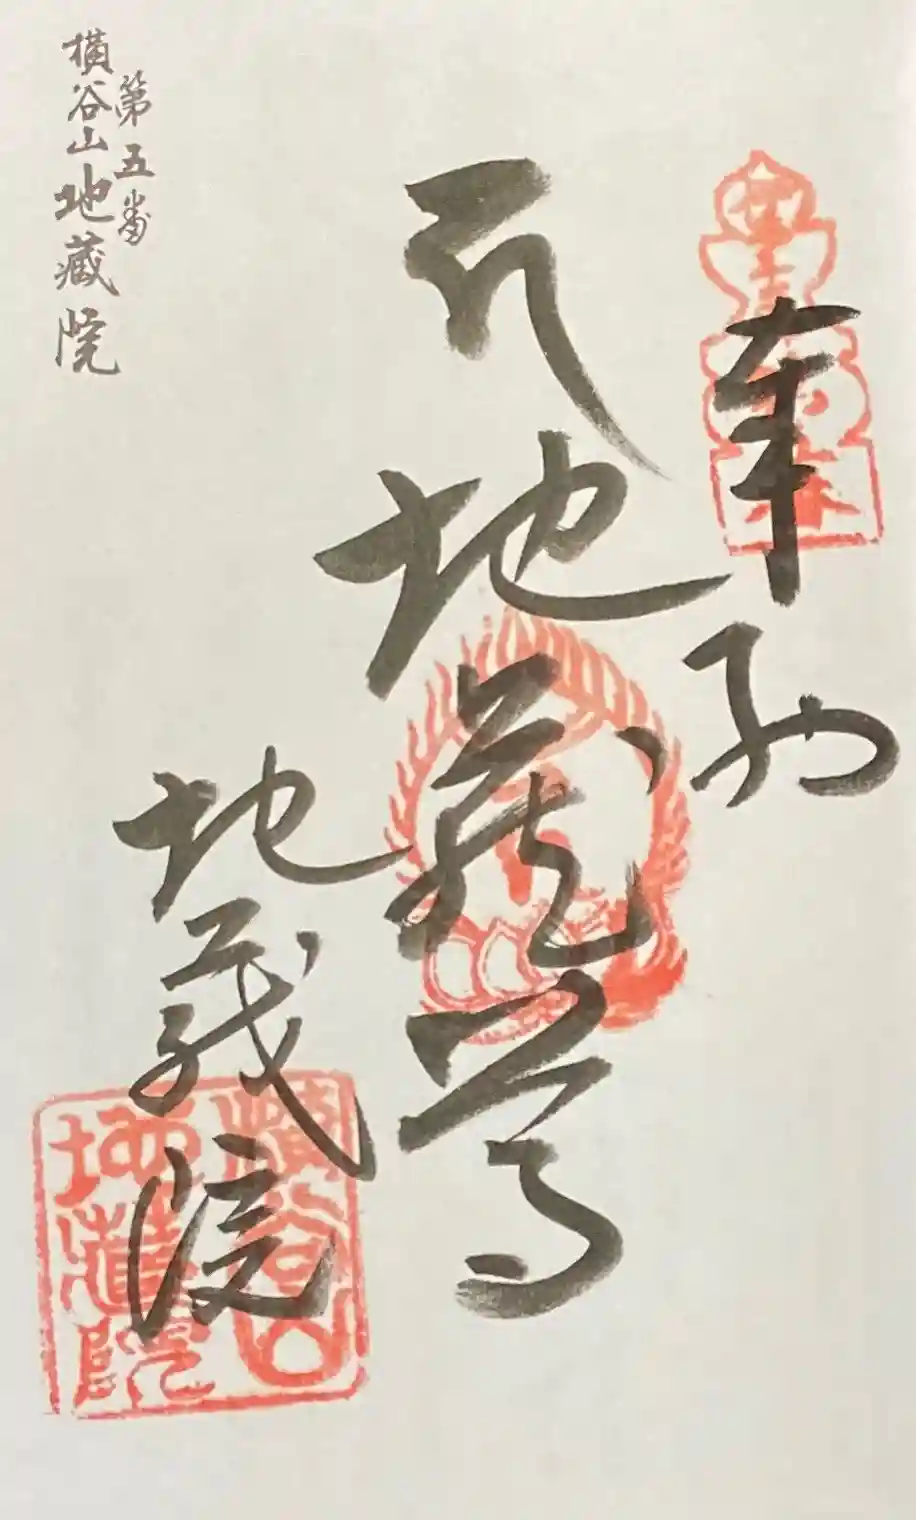 奉納
地蔵尊
地蔵院
第五番
横谷山地蔵院
横谷山
地蔵院